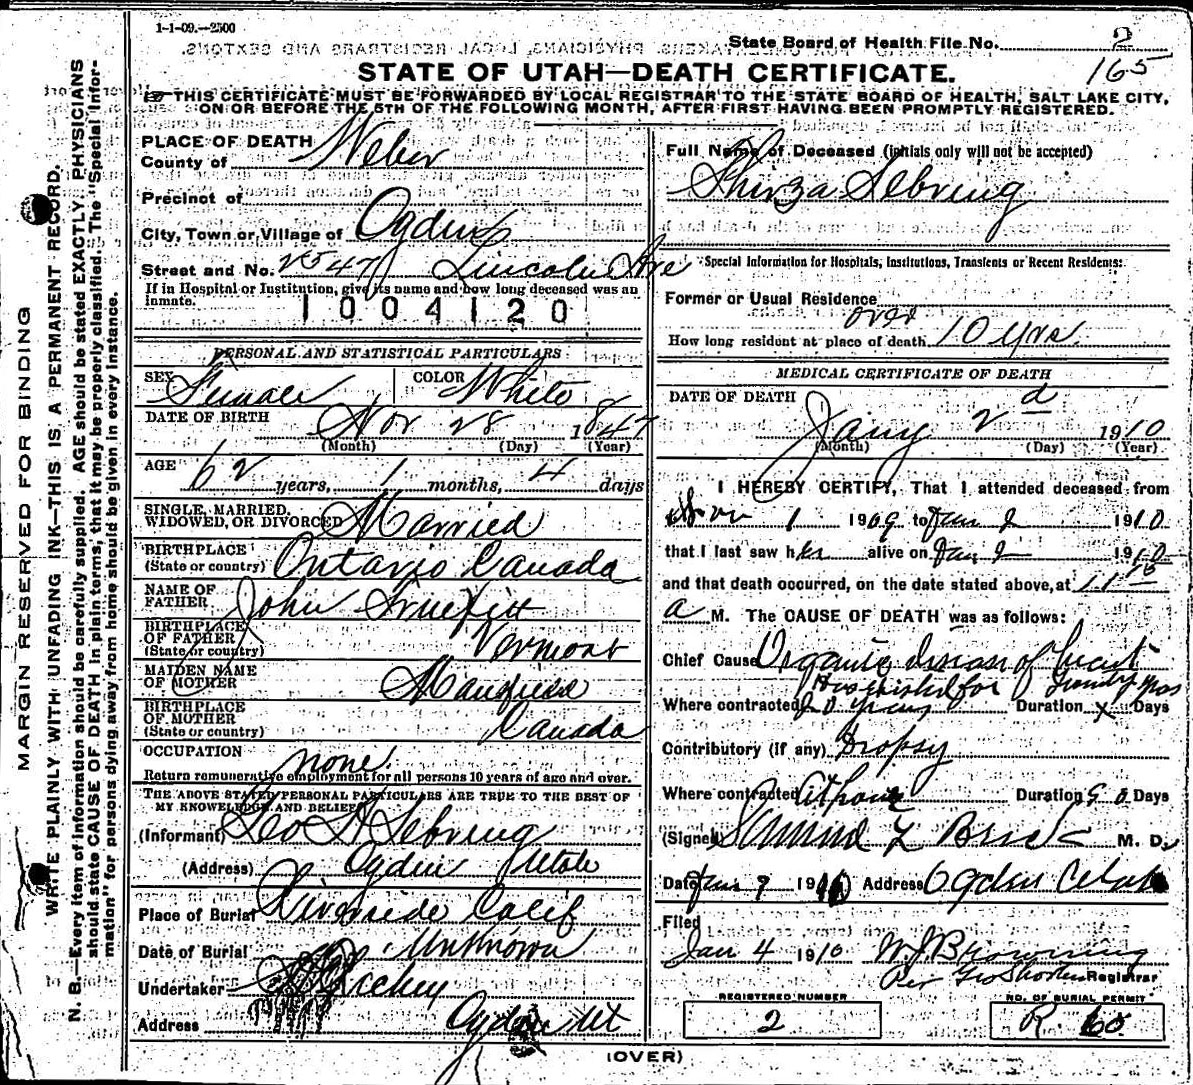 1-1-09.—2500
State Board of Health File No. 2
165
STATE OF UTAH—DEATH CERTIFICATE.
THIS CERTIFICATE MUST BE FORWARDED BY LOCAL REGISTRAR TO THE STATE BOARD OF HEALTH, SALT LAKE CITY,
ON OR BEFORE THE 5TH OF THE FOLLOWING MONTH, AFTER FIRST HAVING BEEN PROMPTLY REGISTERED.
MARGIN RESERVED FOR BINDING
WRITE PLAINLY WITH UNFADING INK—THIS IS A PERMANENT RECORD.
N. B.—Every item of information should be carefully supplied. AGE should be stated EXACTLY. PHYSICIANS
should state CAUSE OF DEATH in plain terms, that it may be properly classified. The "Special Infor-
mation" for persons dying away from home should be given in every instance.
PLACE OF DEATH
County of Weber
Precinct of
City, Town or Village of Ogden
Street and No. 2547 Lincoln Ave
If in Hospital or Institution, give its name and how long deceased was an
inmate.
1004120
PERSONAL AND STATISTICAL PARTICULARS
SEX Female COLOR White
DATE OF BIRTH Nov 28 1847
(Month) (Day) (Year)
AGE 62 years, 1 months, 4 days
SINGLE, MARRIED,
WIDOWED, OR DIVORCED Married
BIRTHPLACE
(State or country) Ontario Canada
NAME OF
FATHER John
BIRTHPLACE
OF FATHER
(State or country) Vermont
MAIDEN NAME
OF MOTHER
BIRTHPLACE
OF MOTHER
(State or country) Canada
OCCUPATION none
Return remunerative employment for all persons 10 years of age and over.
THE ABOVE STATED PERSONAL PARTICULARS ARE TRUE TO THE BEST OF
MY KNOWLEDGE AND BELIEF
(Informant) Geo D Sebring
(Address) Ogden Utah
Place of Burial Riverside Calif
Date of Burial Unknown
Undertaker Richey
Address Ogden Ut
Full Name of Deceased (initials only will not be accepted)
Thirza Sebring
Special Information for Hospitals, Institutions, Transients or Recent Residents:
Former or Usual Residence
over
How long resident at place of death 10 yrs.
MEDICAL CERTIFICATE OF DEATH
DATE OF DEATH
Jany 2d 1910
(Month) (Day) (Year)
I HEREBY CERTIFY, That I attended deceased from
Nov 1 1909 to Jan 2 1910
that I last saw her alive on Jan 2 1910
and that death occurred, on the date stated above, at
a M. The CAUSE OF DEATH was as follows:
Chief Cause Organic disease of heart
Has existed for Twenty yrs
Where contracted 20 years Duration x Days
Contributory (if any) Dropsy
Where contracted At home Duration 90 Days
(Signed) M. D.
Date Jan 9 19 Address Ogden Utah
Filed
Jan 4 1910 W J Browning
Per Geo Shorten Registrar
REGISTERED NUMBER
2
NO. OF BURIAL PERMIT
R
(OVER)